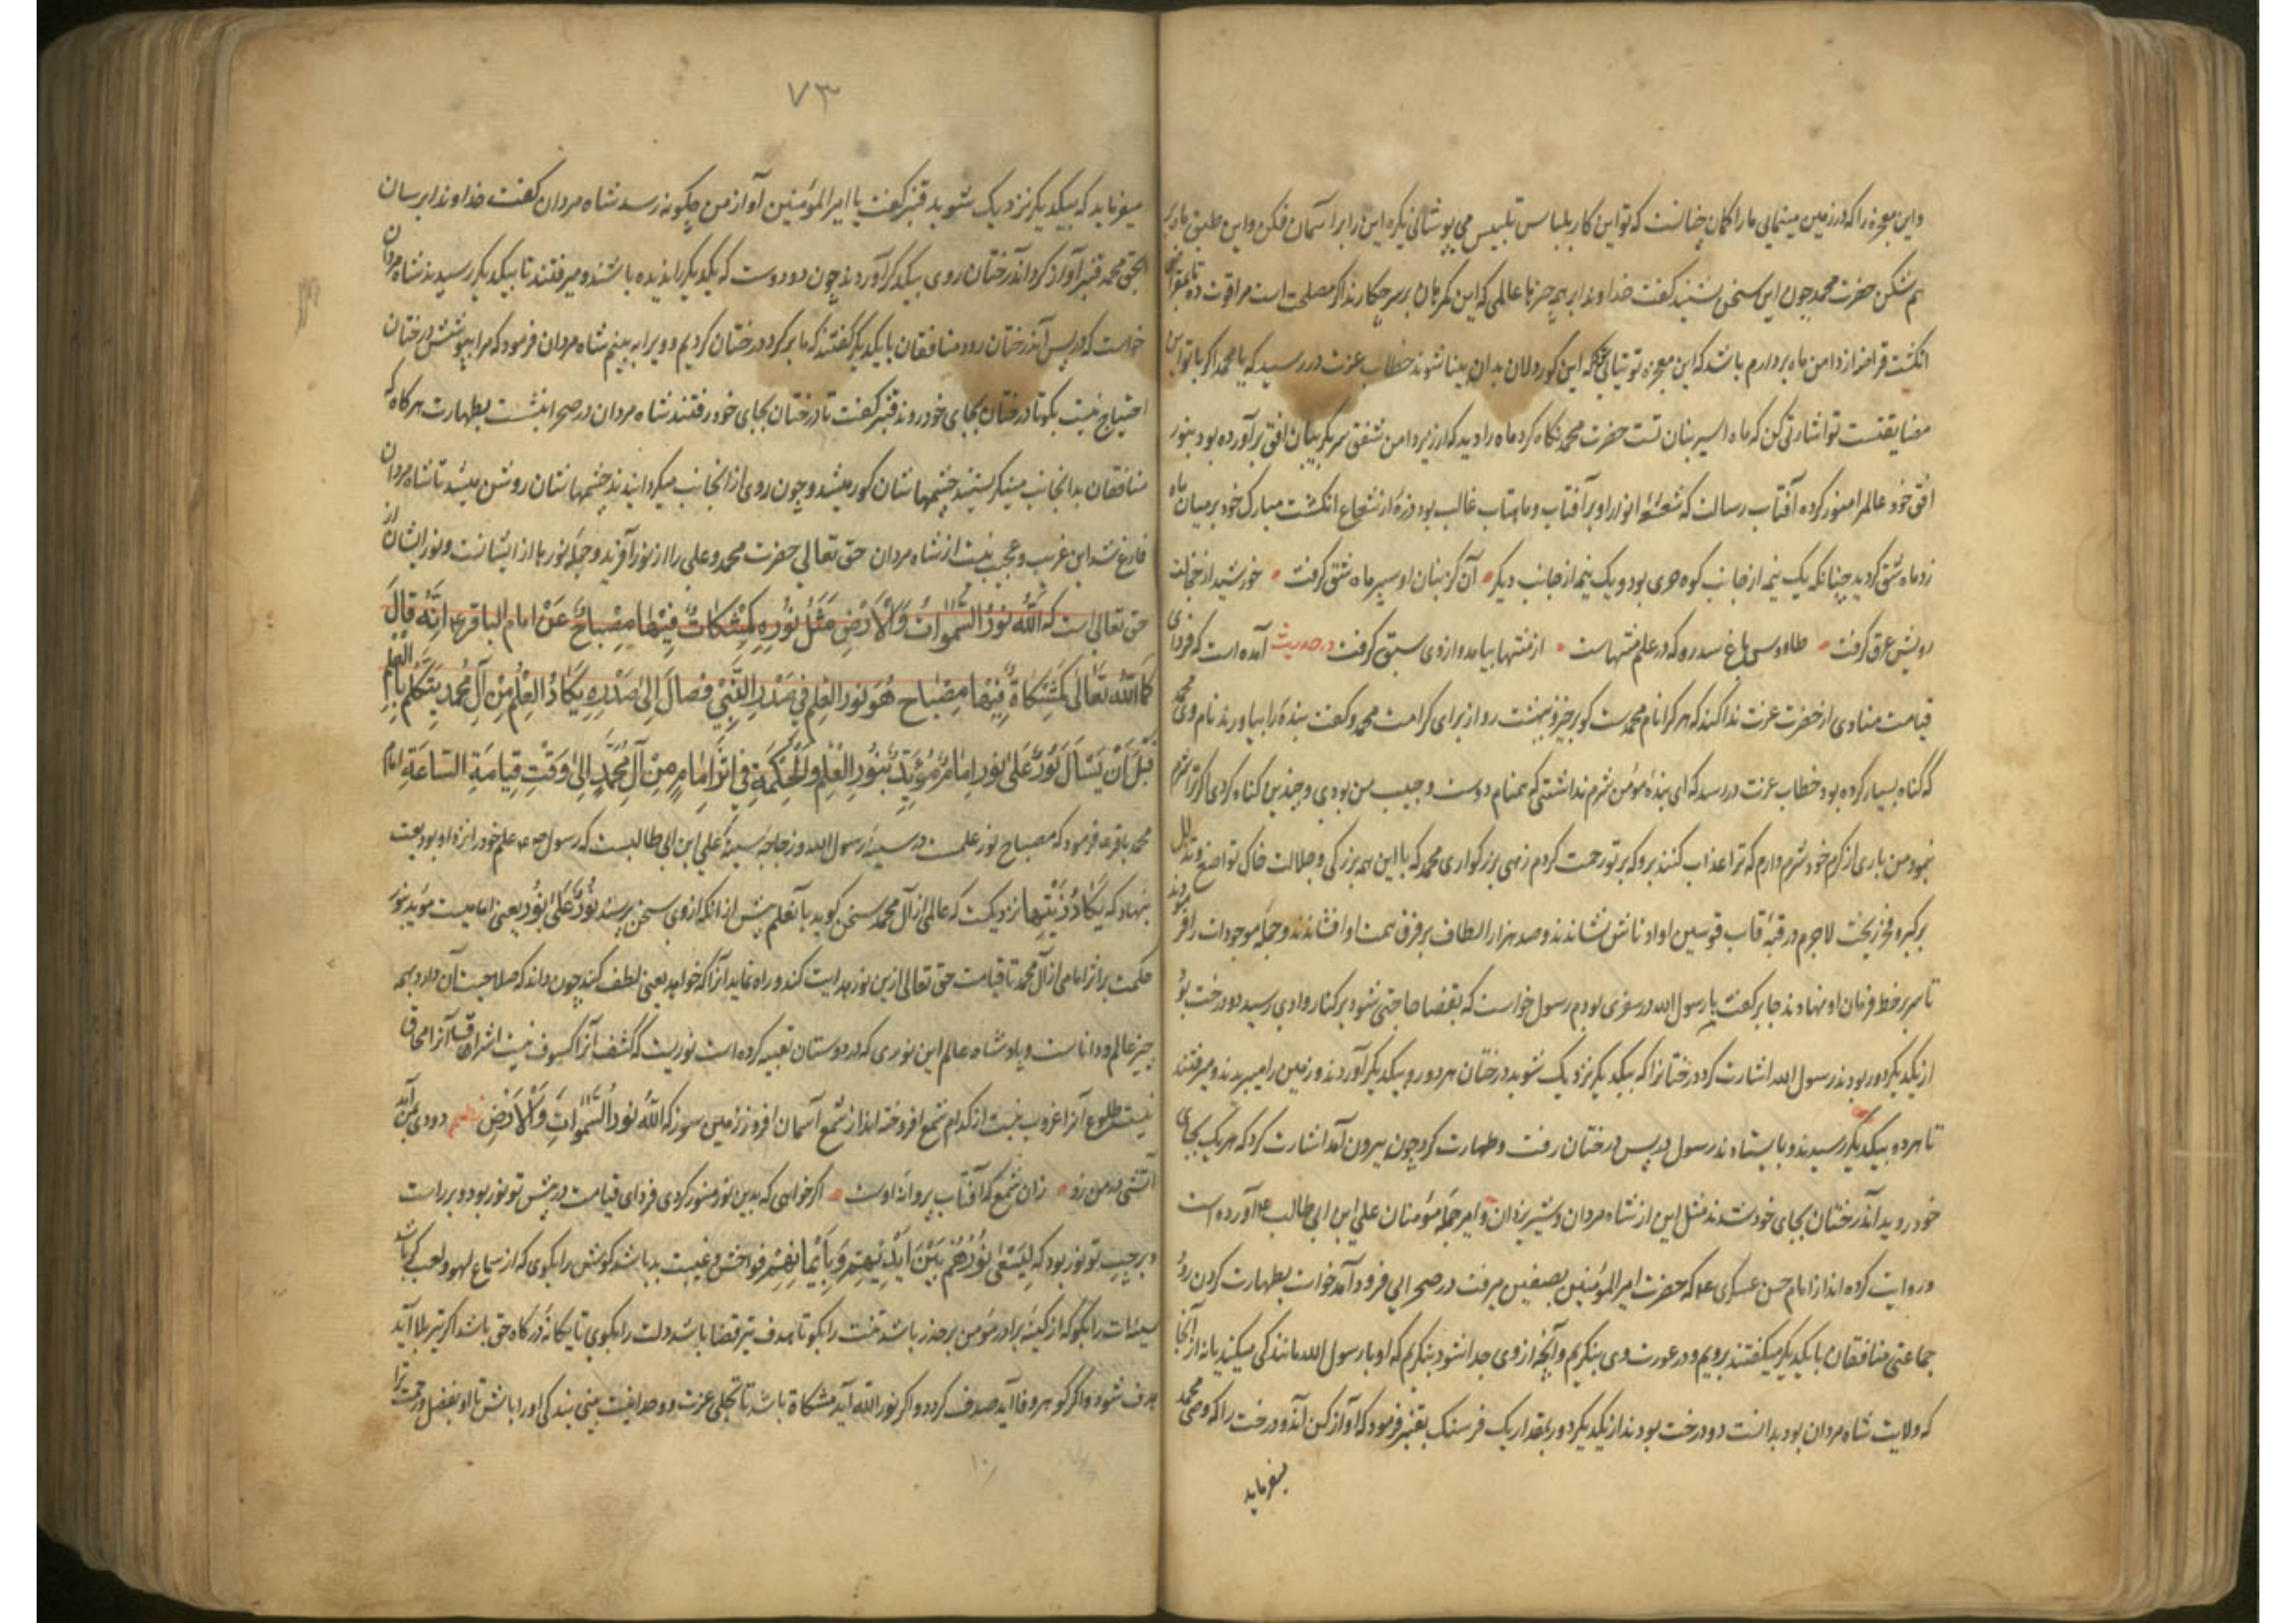 و این معجزه را که در زمین مینمایی ما را گمان چنانست که تو این کار بلباس تلبیس می پوشانی نیکره این را بر آسمان فکن و این طبق ماه را
هم بشکن حضرت محمد چون این سخن بشنید گفت خداوندا بر همه چیزها عالمی که این گمرهان بر سر چکارند اگر مصلحت است مرا قوت ده تا بمقراض
انگشت قرامز از دامن ماه بردارم باشد که این معجزه توتیایی که این کوردلان بدان بینا شوند خطاب عزت در رسید که یا محمد اگر با تو این
مضایقتست تو اشارتی کن که ماه اسیر بنان تست حضرت محمد نگاه کرد ماه را دید که از زیر دامن شفق سر بگریبان افق برآورده بود بنور
افق خود عالم را منور کرده آفتاب رسالت که شعشعهٔ انوار او بر آفتاب و ماهتاب غالب بود ذرهٔ از شعاع انگشت مبارک خود بر میان ماه
زد ماه شق گردید چنانکه یک نیمه از جانب کوه حری بود و یک نیمه از جانب دیگر آن کز بنان او سپر ماه شق گرفت خورشید از خجالت
رویش عرق گرفت طاووس باغ سدره که در علم منتهاست از منتها بیامد و از وی سبق گرفت در حدیث آمده است که فردای
قیامت منادی از حضرت عزت ندا کند که هر کرا نام محمدست کو برخیز و ببهشت رو از برای کرامت محمد و گفت بندهٔ را بیاورند نام وی محمد
که گناه بسیار کرده بود خطاب عزت در رسد که ای بندهٔ مؤمن شرم نداشتی که همنام دوست و حبیب من بودی و چندین گناه کردی اگر ترا شرم
نبود من باری از کرم خود شرم دارم که ترا عذاب کنند برو که بر تو رحمت کردم زهی بزرگواری محمد که با این همه بزرگی و جلالت خاک تواضع و تذلل
بر کبر و فخر ریخت لاجرم در قبهٔ قاب قوسین او ادناش نشاندند و صد هزار الطاف بر فرق همت او افشاندند و جمله موجودات را فرمودند
تا سر بر خط فرمان او نهادند جابر گفت با رسول الله در سفری بودم رسول خواست که بقضا حاجتی شود بر کنار وادی رسید دو درخت بود
از یکدیگر دور بودند رسول الله اشارت کرد درختانرا که بیکدیگر نزدیک شوید درختان هر دو رو بیکدیگر آوردند و زمین را میبریدند و میرفتند
تا هر دو بیکدیگر رسیدند و بایستادند رسول در پس درختان رفت و طهارت کرد چون بیرون آمد اشارت کرد که هر یک بجای
خود روید آندرختان بجای خود شدند مثل این از شاه مردان و شیر یزدان و امیر جمله مؤمنان علی ابن ابی طالب ع آورده است
و روایت کرده اند از امام حسن عسکری ع که حضرت امیر المؤمنین بصفین میرفت در صحرایی فرود آمد خواست بطهارت کردن رود
جماعتی منافقان با یکدیگر میگفتند برویم و در عورت وی بنگریم و آنچه از وی جدا شود بنگریم که او با رسول الله مانندگی میکند یا نه از آنجا
که ولایت شاه مردان بود بدانست دو درخت بودند از یکدیگر دور بمقدار یک فرسنگ بقنبر فرمود که آواز کن آندو درخت را که وصی محمد
میفرماید
۷۳
میفرماید که بیکدیگر نزدیک شوید قنبر گفت یا امیر المؤمنین آواز من چگونه رسد شاه مردان گفت خداوندا برسان
بحق محمد قنبر آواز کرد آندرختان روی بیکدیگر آوردند چون دو دوست که یکدیگر را ندیده باشند و میرفتند تا بیکدیگر رسیدند شاه مردان
خواست که در پس آندرختان رود منافقان با یکدیگر گفتند که ما بر گرد درختان گردیم و ویرا ببینیم شاه مردان فرمود که مرا بپوشش درختان
احتیاج نیست بگو تا درختان بجای خود روند قنبر گفت تا درختان بجای خود رفتند شاه مردان در صحرا بنشست بطهارت هرگاه که
منافقان بدانجانب مینگریستند چشمهاشان کور میشد و چون روی از آنجانب میگردانیدند چشمهاشان روشن میشد تا شاه مردان
فارغ شد این غریب و عجب نیست از شاه مردان حق تعالی حضرت محمد و علی را از نور آفرید و جمله نورها از ایشانست و نور ایشان از
حق تعالی است که اَللّٰهُ نُورُ السَّمٰوَاتِ وَالْاَرْضِ مَثَلُ نُورِهِ كَمِشْكَاتٍ فِيْهَا مِصْبَاحٌ عَنْ امام الباقر ع اِنَّهُ قَالَ
كَمَا اللّٰهُ تَعَالٰى كَمِشْكَاةٍ فِيْهَا مِصْبَاح هُوَ نُورُ الْعِلْمِ فِي صَدْرِ النَّبِيِّ فَصَالَ اِلىٰ صَدْرِهِ يَكَادُ الْعِلْمُ مِنْ آلِ مُحَمد يَتَكَلَّمُ بِالْعِلْمِ
قَبْلَ اَنْ يُسْأَلَ نُورٌ عَلىٰ نُور اِمَامٌ مُؤَيَّدٌ بِنُورِ الْعِلْمِ وَالْحِكْمَةِ فِي اَثَرِ اِمَامٍ مِنْ آلِ مُحَمَّدٍ اِلىٰ وَقْتِ قِيَامَةِ السَّاعَةِ امام
محمد باقر ع فرمود که مصباح نور علمست در سینهٔ رسول الله و زجاجه سینه علی ابن ابی طالبست که رسول ص ع علم خود را نزد او بودیعت
بنهاد که يَكَادُ زَيْتُهَا نزدیکست که عالمی از آل محمد سخن گوید بآنعلم پیش از آنکه از وی سخن پرسند نُورٌ عَلىٰ نُور یعنی امامیست مؤید بنور
حکمت بر اثر امامی از آل محمد تا قیامت حق تعالی ازین نور هدایت کند و راه نماید آنرا که خواهد یعنی لطف کند چون داند که صلاحیت آن دارد بهمه
چیز عالم و داناست و پادشاه عالم این نوری که در دوستان تعبیه کرده است نوریست که کشف آنرا کسوف نیست اشراق آنرا محاق
نیست طلوع آنرا غروب نیست از کدام شمع افروخته اند از شمع آسمان افروز زمین سوز که اَللّٰهُ نُورُ السَّمٰوَاتِ وَالْاَرْضِ نظم دودی من آمد
آتشی در من زد زان شمع که آفتاب پروانهٔ اوست اگر خواهی که بدین نور منور گردی فردای قیامت در پیش تو نور بود و بر راست
و بر چپ تو نور بود که لِيَسْعٰى نُورُهُمْ بَيْنَ اَيْدِيْهِمْ وَبِاَيْمَانِهِمْ فواحش و غیبت بد باشد گوش را بگوی که از سماع لهو و لعب کر باشد
سینه ات را بگو که از کینه برادر مؤمن بر حذر باشد تنت را بگو تا هدف تیر قضا باشد دلت را بگوی تا یگانهٔ درگاه حق باشد اگر تیر بلا آید
هدف شود و اگر گوهر وفا آید صدف گردد و اگر نور الله آید مشکاة باشد تا تجلی عزت و وحدانیت بینی بندگی او را باش تا او بفضل و رحمت ترا